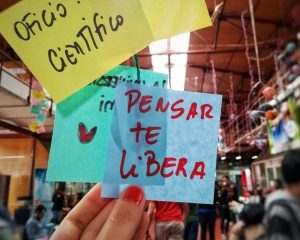 OFICIO
CIENTÍFICO
PENSAR
TE
LIBERA